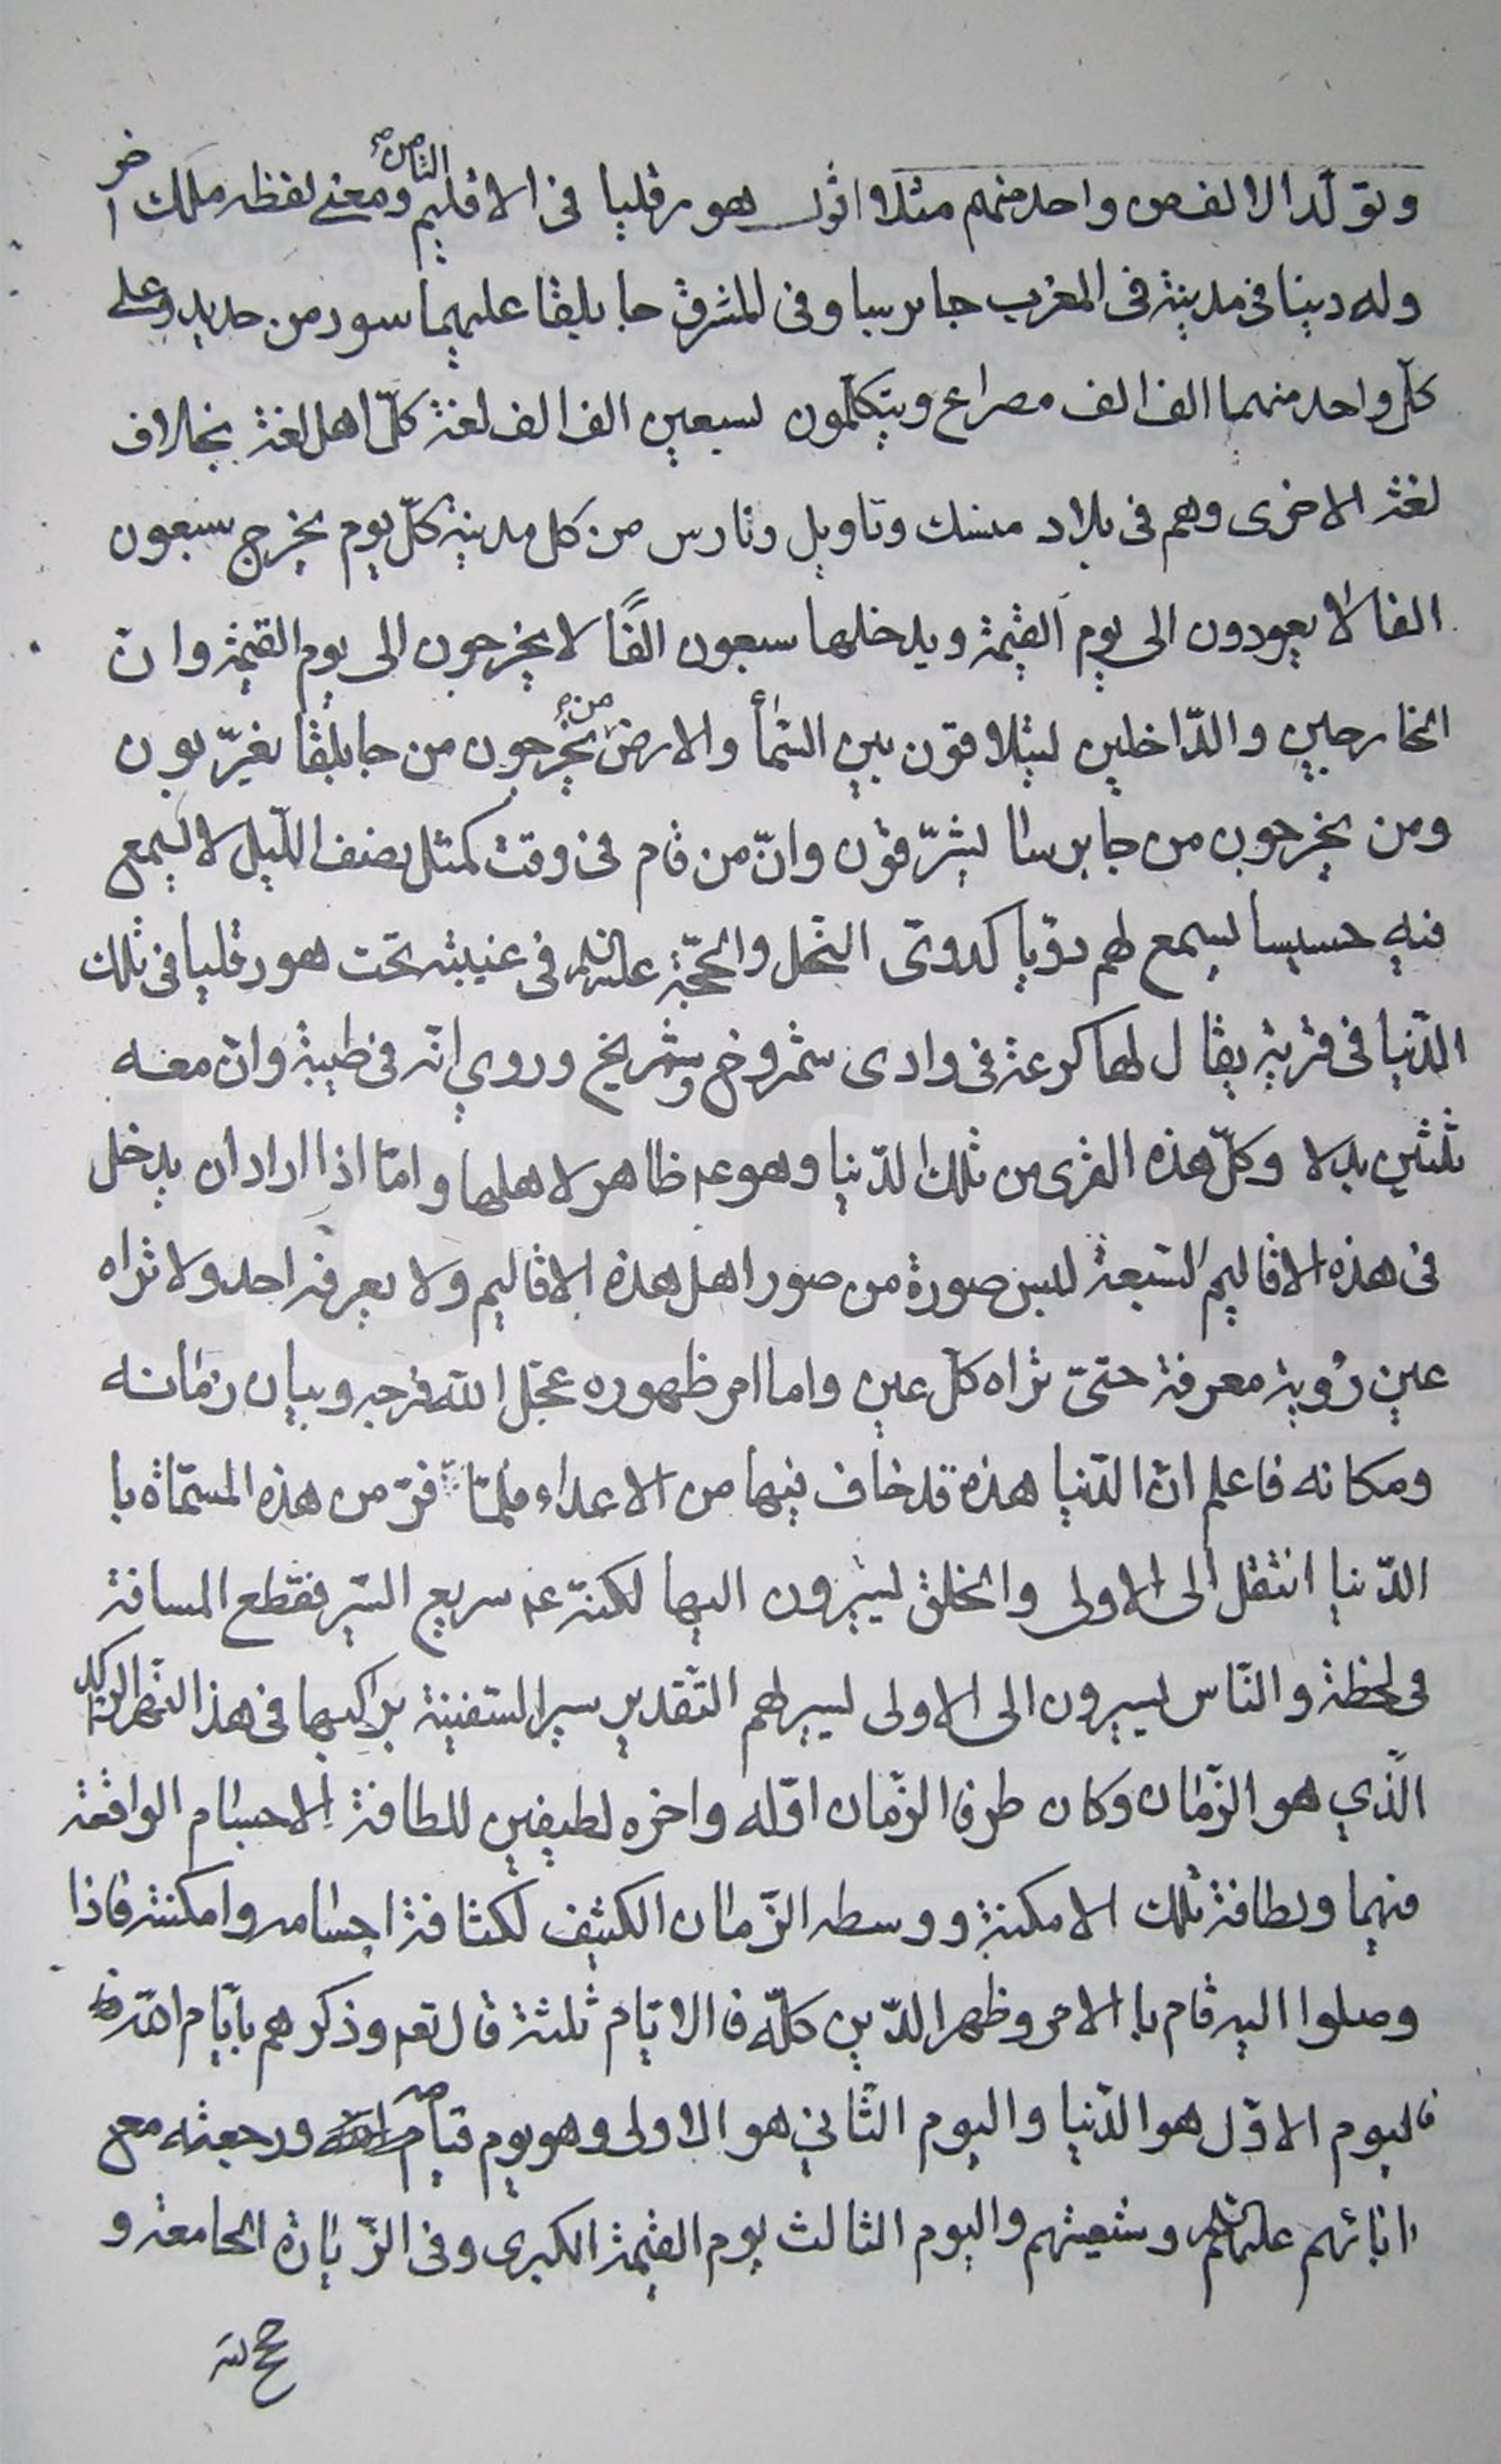 وتولّد الالف من واحد منهم مثلا اقول هورقليا فى الاقليم الثامن ومعنى لفظه ملك اخر
وله دينا فى مدينة فى المغرب جابرسا وفى المشرق جابلقا عليهما سور من حديد وعلى
كلّ واحد منهما الف الف مصراع ويتكلّمون بسبعين الف الف لغة كلّ اهل لغة بخلاف
لغة الاخرى وهم فى بلاد منسك وتاويل وتارس من كل مدينة كلّ يوم يخرج سبعون
الفا لا يعودون الى يوم القيمة ويدخلها سبعون الفًا لا يخرجون الى يوم القيمة وان
الخارجين والدّاخلين ليتلاقون بين السّمأ والارض من يخرجون من جابلقا يغرّبون
ومن يخرجون من جابرسا يشرّقون وانّ من قام فى وقت كمثل نصف اللّيل لا يسمع
فيه حسيسا يسمع لهم دويّا كدوىّ النّحل والحجّة عليه السلم فى غيبته تحت هورقليا فى تلك
الدّنيا فى قرية يقال لها كرعة فى وادى شمروخ وشمريخ وروي انّه فى طيبة وان معه
ثلثين بدلا وكلّ هذه القرى من تلك الدّنيا وهو ع ظاهر لاهلها وامّا اذا اراد ان يدخل
فى هذه الاقاليم السّبعة لبس صورة من صور اهل هذه الاقاليم ولا يعرفه احد ولا تراه
عين رُؤية معرفة حتىّ تراه كلّ عين واما امر ظهوره عجّل الله فرجه وبيان زمانه
ومكانه فاعلم انّ الدّنيا هذه قد خاف فيها من الاعداء فلمّا فرّ من هذه المسمّاة با
الدّنيا انتقل الى الاولى والخلق يسيرون اليها لكنّه ع سريع السّير فقطع المسافة
فى لحظة والنّاس يسيرون الى الاولى يسير لهم التّقدير سير السّفينة براكبها فى هذا النّهر الراكد
الّذي هو الزّمان وكان طرفا الزّمان اوّله واخره لطيفين للطافة الاجسام الواقعة
فيهما ولطافة تلك الامكنة ووسطه الزّمان الكثيف لكثافة اجسامه وامكنته فاذا
وصلوا اليه قام با الامر وظهر الدّين كلّه فا الايّام ثلثة قال تعم وذكرهم بايّام اللّه
فاليوم الاوّل هو الدّنيا واليوم الثّاني هو الاولى وهو يوم قيامه ورجعته مع
ابائهم عليهم السلم وشيعتهم واليوم الثالث يوم القيمة الكبرى وفى الزّيارة الجامعة و